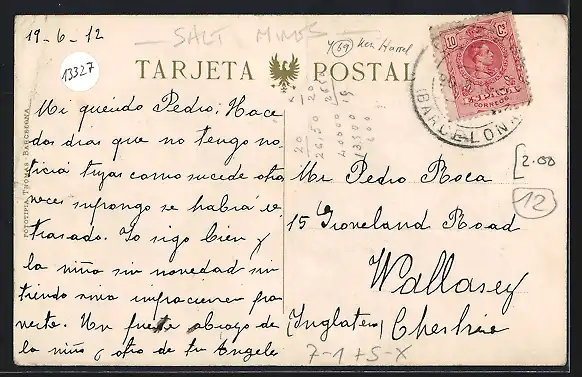 19-6-12
SALT MINES
Y 69 Ken Harrel
13327
TARJETA POSTAL
10 Cs
CORREOS
(BARCELONA)
FOTOTIPIA THOMAS. BARCELONA
Mi querido Pedro: Hace
dos dias que no tengo no-
ticia tuyas como sucede otra
veces supongo se habrá re-
trasado. Yo sigo bien y
la niña sin novedad sin-
tiendo una
Un fuerte abrazo de
la niña y otro de tu Angela
Mr Pedro Roca
15 Groveland Road
Wallasey
(Inglaterra) Cheshire
2.00
12
7-1+S-X